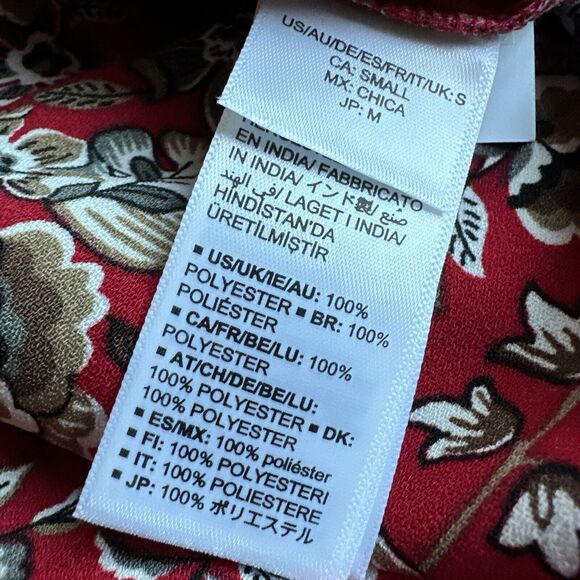 US/AU/DE/ES/FR/IT/UK: S
CA: SMALL
MX: CHICA
JP: M
EN INDIA/ FABBRICATO
IN INDIA/ インド製/ صنع
في الهند/ LAGET I INDIA/
HİNDİSTAN'DA
ÜRETİLMİŞTİR
▪ US/UK/IE/AU: 100%
POLYESTER ▪ BR: 100%
POLIÉSTER
▪ CA/FR/BE/LU: 100%
POLYESTER
▪ AT/CH/DE/BE/LU:
100% POLYESTER ▪ DK:
100% POLYESTER
▪ ES/MX: 100% poliéster
▪ FI: 100% POLYESTERI
▪ IT: 100% POLIESTERE
▪ JP: 100% ポリエステル